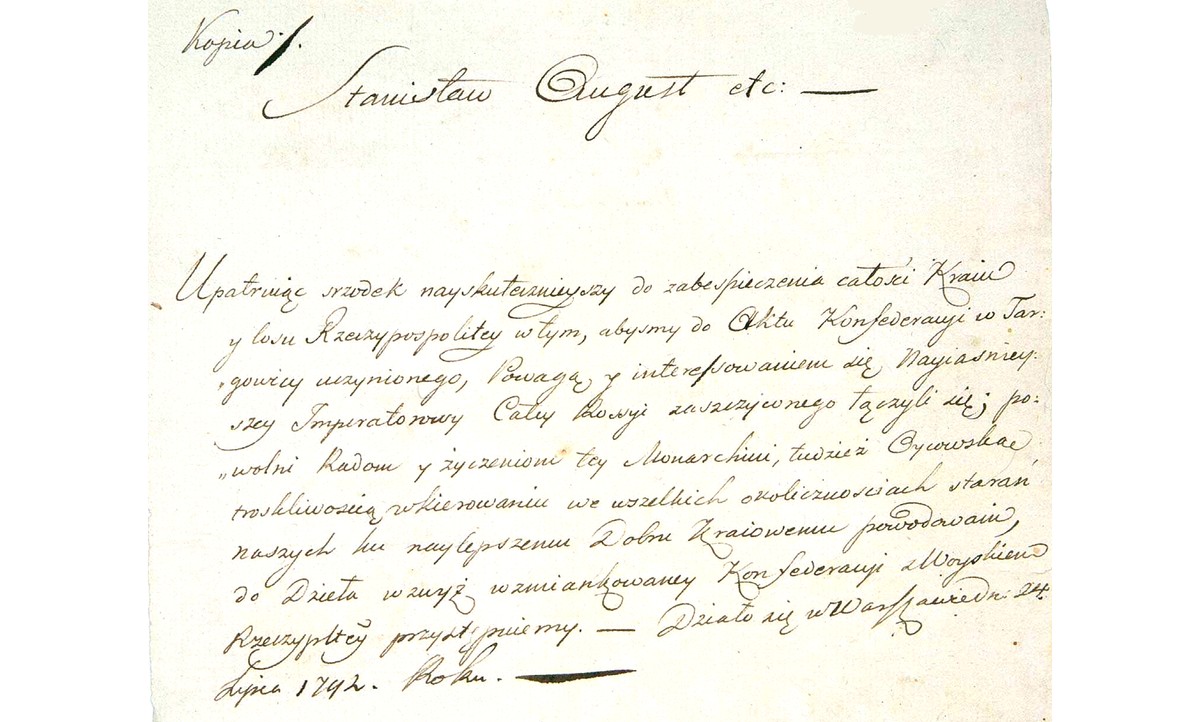 Kopia ./.
Stanisław August etc: —
Upatruiąc srzodek nayskutecznieyszy do zabespieczenia całości Kraiu
y losu Rzeczypospolitey w tym, abysmy do Aktu Konfederacyi w Tar:
„gowicy uczynionego, Powagą y interessowaniem się Nayiaśniey:
szey Imperatorowy Całey Rossyi zaszczyconego łączyli się; po:
„wolni Radom y życzeniom tey Monarchini, tudzież Oycowską
troskliwością w kierowaniu we wszelkich okolicznościach starań
naszych ku naylepszemu Dobru Kraiowemu powodowani,
do Dzieła wzwyż wzmiankowaney Konfederacyi z Woyskiem
Rzeczypltey przystępuiemy. — Działo się w Warszawie dn: 24.
Lipca 1792. Roku. —